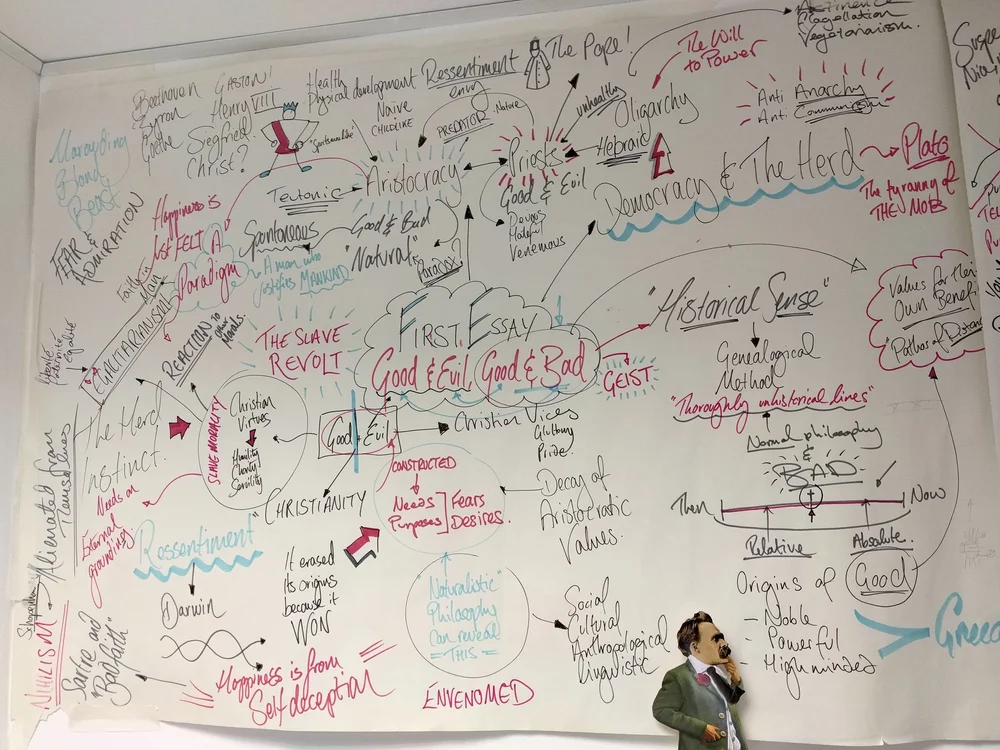 Flagellation
Vegetarianism.
The Pope!
The Will
to Power
Beethoven
Byron
Goethe
GASTON!
Henry VIII
Siegfried
Christ?
Health
Physical development
Naive
CHILDLIKE
Ressentiment
envy
PREDATOR
Nature
unhealthy
Oligarchy
Hebraic
Anti Anarchy
Anti Communism
Marauding
Blond
Beast
FEAR
&
ADMIRATION
"Sportsmanlike"
Teutonic
Aristocracy
Priests
Good & Evil
Devous
Hateful
Venemous
Democracy & The Herd
Plato
The tyranny of
THEV MOBS
Happiness
is FELT
A
Paradigm
Spontaneous
A man who
justifies MANKIND
Good & Bad
"Natural"
Paradox
Faith in
Man
EGALITARIANISM
REACTION to
Morals.
THE SLAVE
REVOLT
FIRST ESSAY
Good & Evil, Good & Bad
GEIST
"Historical Sense"
Genealogical
Method
"Thoroughly unhistorical lines"
Normal philosophy
&
BAD
Values for their
Own Benefit
"Pathos of Distance
The Herd
Instinct.
SLAVE MORALITY
Christian
Virtues
Humility
Charity
Servility
Good Evil
Christian Vices
Gluttony
Pride.
"CHRISTIANITY
CONSTRUCTED
Needs
Purposes
Fears
Desires.
Decay of
Aristocratic
Values.
Then
Now
Relative
Absolute.
Alienated from
Themselves
Needs an
External
grounding
Ressentiment
Darwin
It erased
Its origins
because it
WON
"Naturalistic"
Philosophy
Can reveal
THIS
Social
Cultural
Anthropological
Linguistic
Origins of
Good
- Noble
- Powerful
- High minded
Greec
NIHILISM
Sartre and
"Bad faith"
Happiness is from
Self deception
ENVENOMED